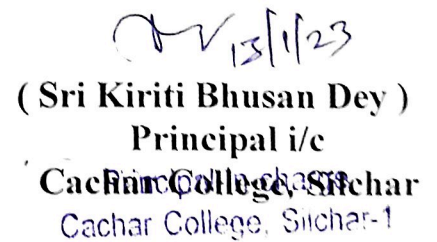 13/1/23
( Sri Kiriti Bhusan Dey )
Principal i/c
Cachar College, Silchar
Principal in-charge
Cachar College, Silchar-1